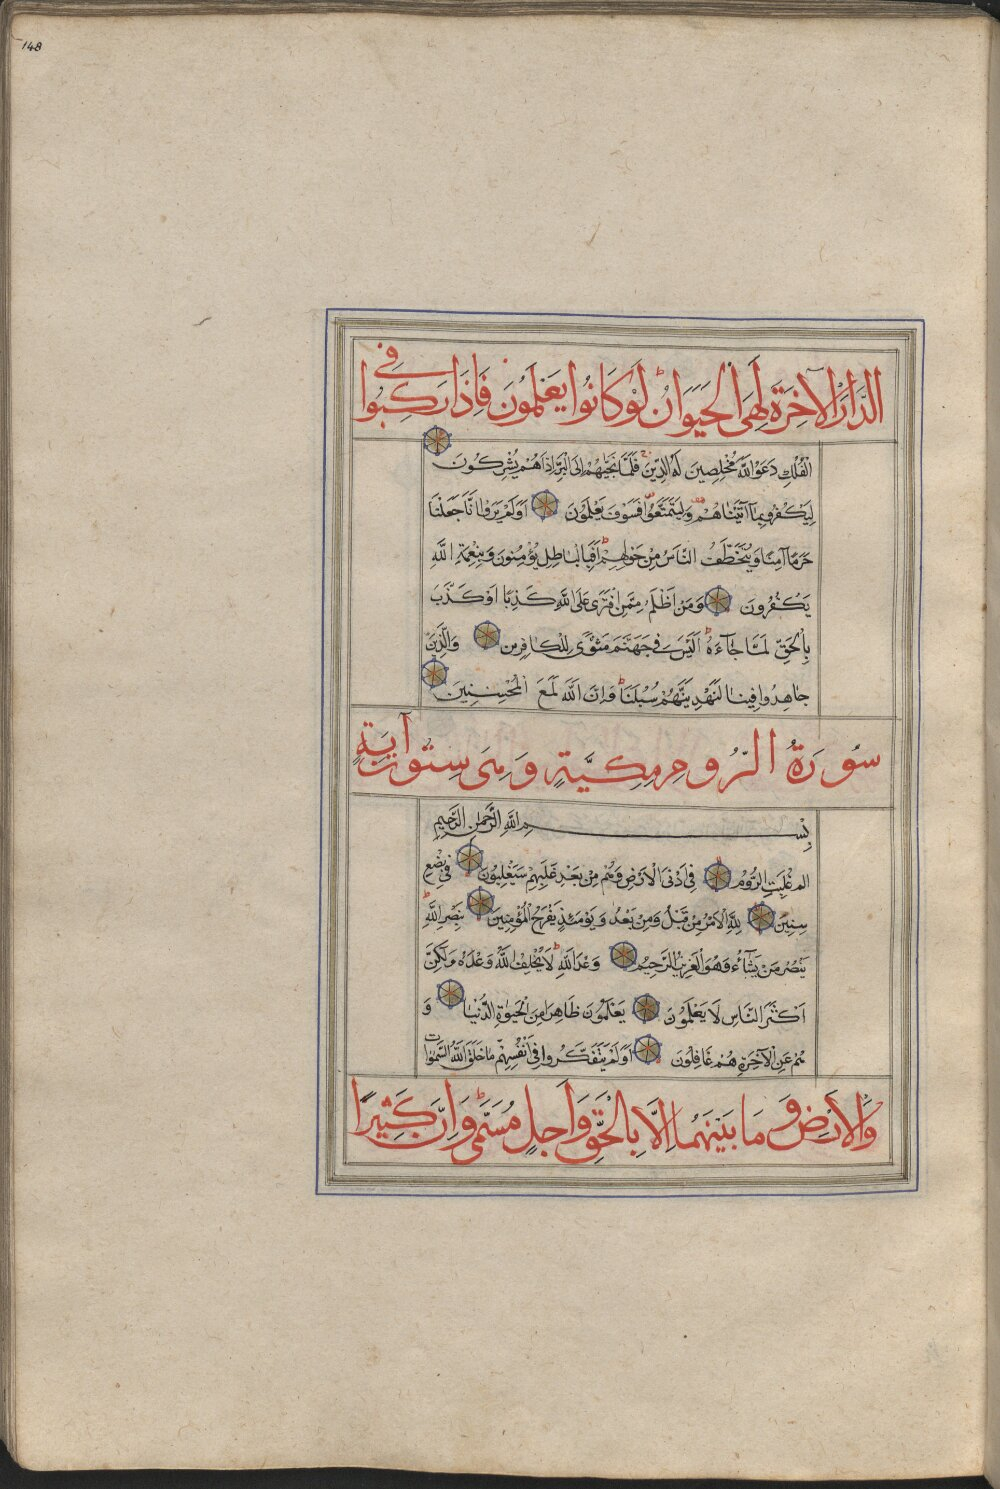 148
الدَّارَ الْآخِرَةَ لَهِيَ الْحَيَوَانُ لَوْ كَانُوا يَعْلَمُونَ فَإِذَا رَكِبُوا فِي
الْفُلْكِ دَعَوُا اللَّهَ مُخْلِصِينَ لَهُ الدِّينَ فَلَمَّا نَجَّيٰهُمْ إِلَى الْبَرِّ إِذَا هُمْ يُشْرِكُونَ
لِيَكْفُرُوا بِمَا آتَيْنَاهُمْ وَلِيَتَمَتَّعُوا فَسَوْفَ يَعْلَمُونَ أَوَلَمْ يَرَوْا أَنَّا جَعَلْنَا
حَرَمًا آمِنًا وَيُتَخَطَّفُ النَّاسُ مِنْ حَوْلِهِمْ أَفَبِالْبَاطِلِ يُؤْمِنُونَ وَبِنِعْمَةِ اللَّهِ
يَكْفُرُونَ وَمَنْ أَظْلَمُ مِمَّنِ افْتَرَى عَلَى اللَّهِ كَذِبًا أَوْ كَذَّبَ
بِالْحَقِّ لَمَّا جَاءَهُ أَلَيْسَ فِي جَهَنَّمَ مَثْوًى لِلْكَافِرِينَ وَالَّذِينَ
جَاهَدُوا فِينَا لَنَهْدِيَنَّهُمْ سُبُلَنَا وَإِنَّ اللَّهَ لَمَعَ الْمُحْسِنِينَ
سُورَةُ الرُّومِ مَكِّيَّةٍ وَهِيَ سِتُّونَ آيَةٍ
بِسْمِ اللَّهِ الرَّحْمٰنِ الرَّحِيمِ
الم غُلِبَتِ الرُّومُ فِي أَدْنَى الْأَرْضِ وَهُمْ مِنْ بَعْدِ غَلَبِهِمْ سَيَغْلِبُونَ فِي بِضْعِ
سِنِينَ لِلَّهِ الْأَمْرُ مِنْ قَبْلُ وَمِنْ بَعْدُ وَيَوْمَئِذٍ يَفْرَحُ الْمُؤْمِنُونَ بِنَصْرِ اللَّهِ
يَنْصُرُ مَنْ يَشَاءُ وَهُوَ الْعَزِيزُ الرَّحِيمُ وَعْدَ اللَّهِ لَا يُخْلِفُ اللَّهُ وَعْدَهُ وَلَكِنَّ
أَكْثَرَ النَّاسِ لَا يَعْلَمُونَ يَعْلَمُونَ ظَاهِرًا مِنَ الْحَيٰوةِ الدُّنْيَا وَ
هُمْ عَنِ الْآخِرَةِ هُمْ غَافِلُونَ أَوَلَمْ يَتَفَكَّرُوا فِي أَنْفُسِهِمْ مَا خَلَقَ اللَّهُ السَّمٰوَاتِ
وَالْأَرْضَ وَمَا بَيْنَهُمَا إِلَّا بِالْحَقِّ وَأَجَلٍ مُسَمًّى وَإِنَّ كَثِيرًا